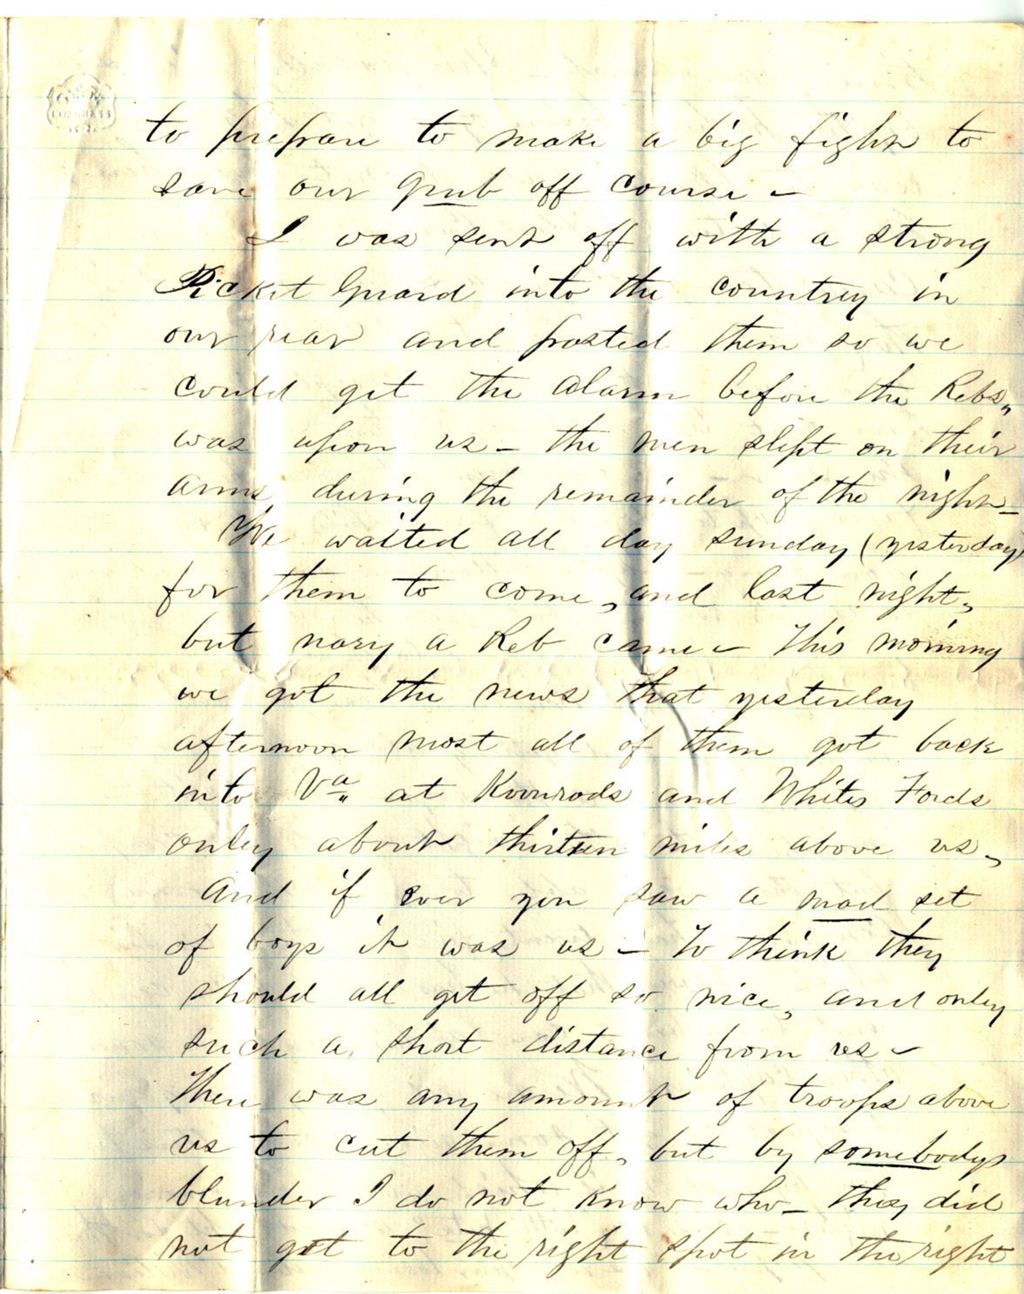 CONGRESS
to prepare to make a big fight to
save our grub off course -
I was sent off with a strong
Picket Guard into the countrey in
our rear and posted them so we
could get the alarm before the Rebs"
was upon us - the men slept on their
arms, during the remainder of the night -
We waited all day sunday (yesterday)
for them to come, and last night,
but nary a Reb came - This morning
we got the news that yesterday
afternoon most all of them got back
into Va" at Koonrods and Whites Fords
onley about thirteen miles above us,
And if ever you saw a mad set
of boys it was us - to think they
should all get off so nice, and onley
such a short distance from us -
There was any amount of troops above
us to cut them off, but by somebodys
blunder I do not know who - they did
not get to the right spot in the right